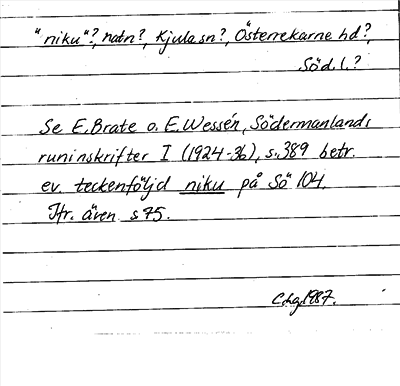 "niku"?, natn?, Kjula sn?, Österrekarne hd?,
Söd. l.?
Se E. Brate o. E. Wessén, Södermanlands
runinskrifter I (1924-36), s. 389 betr.
ev. teckenföljd niku på Sö 104.
Jfr. även s 75.
1987.